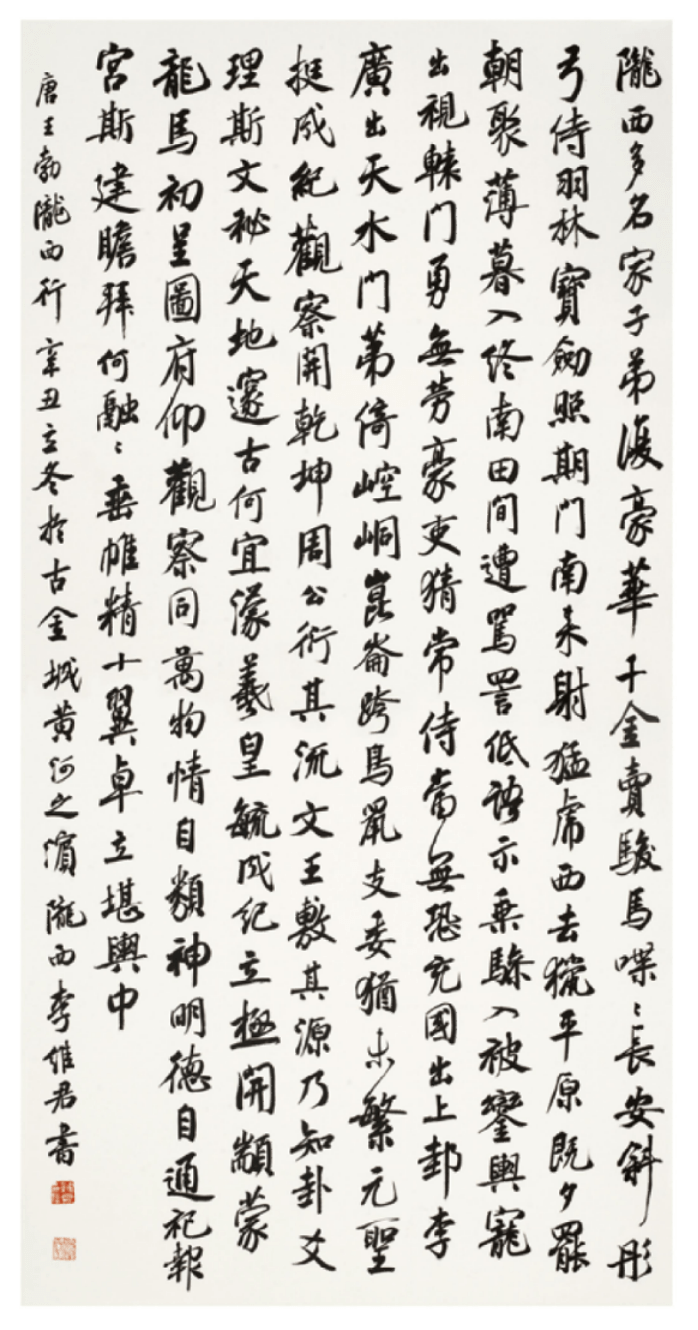 隴西多名家子弟復豪華千金賣駿馬喋〻長安斜彤
弓侍羽林寶劍照期門南來射猛虎西去獵平原既夕罷
朝聚薄暮入終南田間遭罵詈低語示乘驂入被鑾輿寵
出視轅門勇無勞豪吏猜常侍當無恐充國出上邽李
廣出天水門第倚崆峒崑崙跨鳥鼠支委猶未繁元聖
挺成紀觀察開乾坤周公衍其流文王敷其源乃知卦爻
理斯文秘天地邃古何宜濛羲皇毓成紀立極開顓蒙
龍馬初呈圖府仰觀察同萬物情自類神明德自通祀報
宮斯建瞻拜何融〻垂帷精十翼卓立堪輿中
唐王勃隴西行辛丑立冬於古金城黄河之濱隴西李維君書